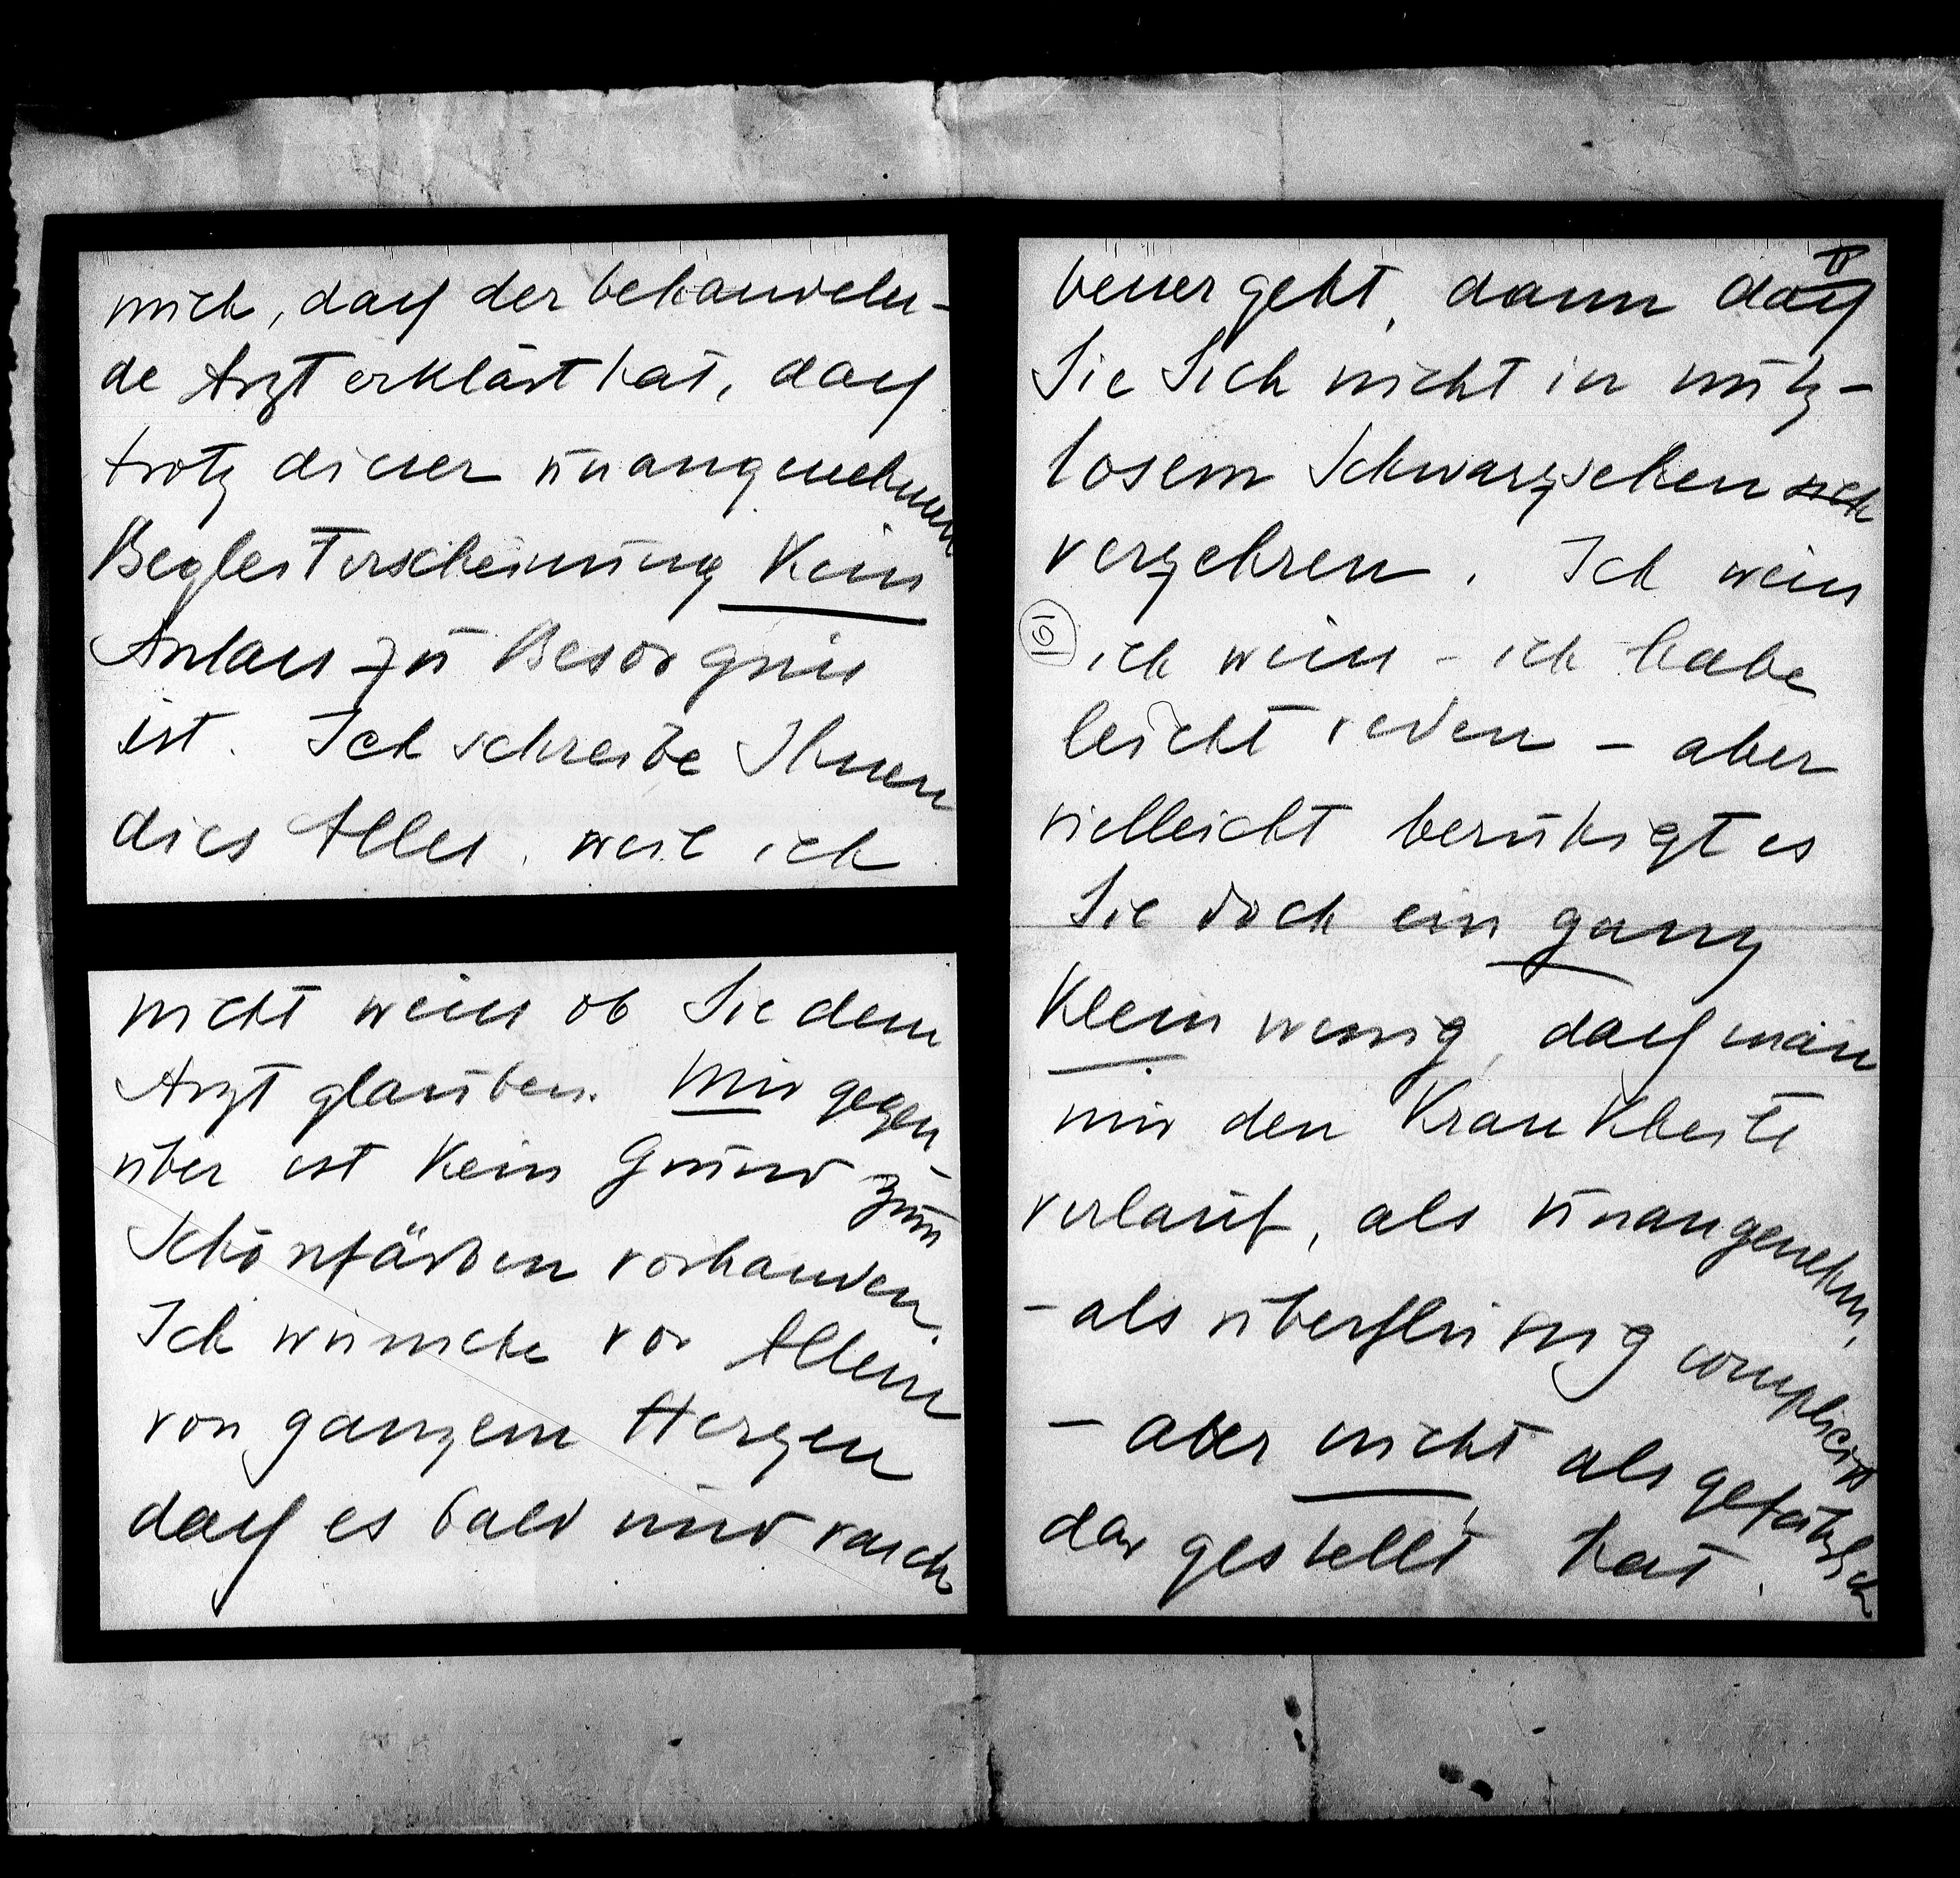 mich, daß der behandeln-
de Arzt erklärt hat, daß
trotz dieser unangenehmen
Begleiterscheinung kein
Anlass zu Besorgnis
ist. Ich schreibe Ihnen
dies Alles, weil ich
nicht weiss ob Sie dem
Arzt glauben. Mir gegen
über ist kein Grund zum
Schönfärben vorhanden.
Ich wünsche vor Allem
von ganzem Herzen
daß es bald und rasch
II
besser geht, damit daß
Sie Sich nicht in nutz-
losem Schwarzsehen sich
verzehren. Ich weiss
ich weiss - ich habe
leicht reden - aber
vielleicht beruhigt es
Sie doch ein ganz
klein wenig, daß man
mir den Krankheits
verlauf, als unangenehm,
- als überflüssig compliciert
- aber nicht als gefährlich
dargestellt hat.